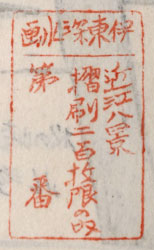 伊東深水画
近江八景
摺刷二百枚限の内
第 番